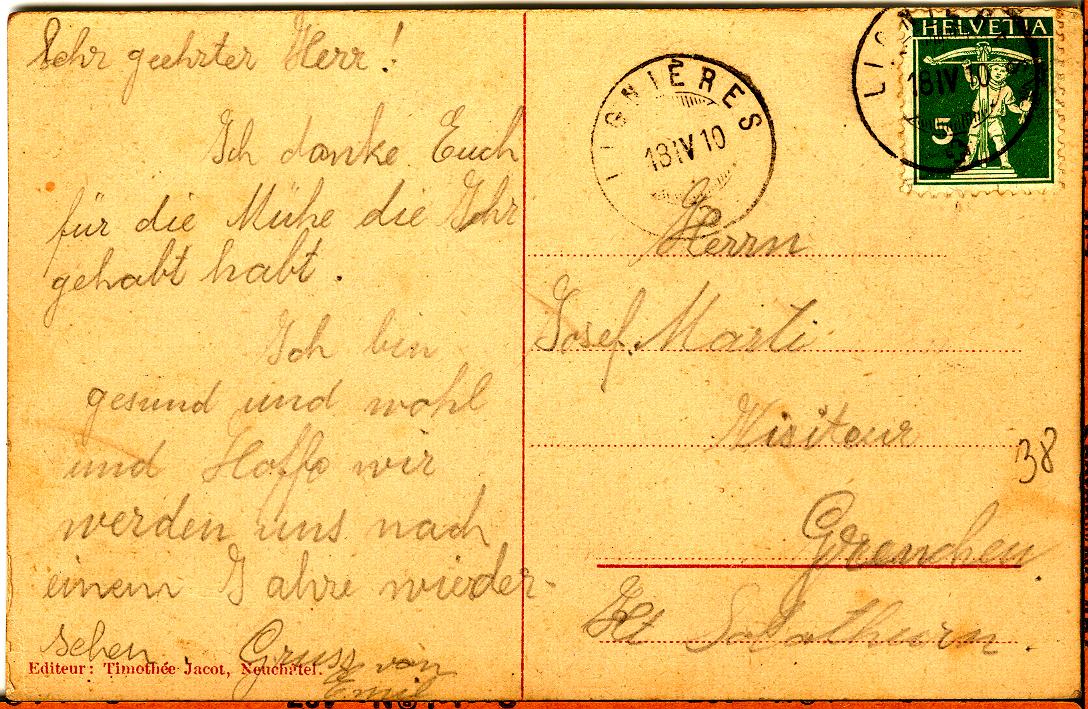 Sehr geehrter Herr!
Ich danke Euch
für die Mühe die Ihr
gehabt habt.
Ich bin
gesund und wohl
und Hoffe wir
werden uns nach
einem Jahre wieder-
sehen. Gruss von
Emil
Editeur: Timothée Jacot, Neuchâtel.
LIGNIÈRES
18 IV 10
HELVETIA
5
LIGNIÈRES
18 IV 10
Herrn
Josef. Marti
Visiteur
38
Grenchen
Kt Solothurn.